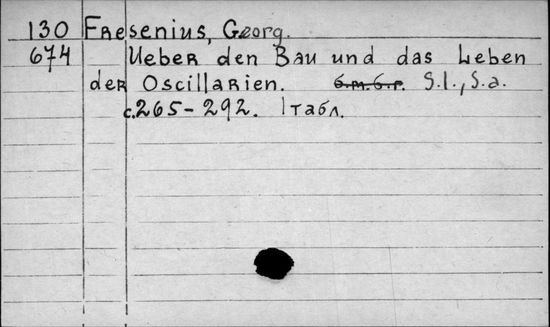 130 Fresenius, Georg.
674 Ueber den Bau und das Leben
der Oscillarien. б.м.б.г. S.l., S.a.
с.265-292. 1 табл.